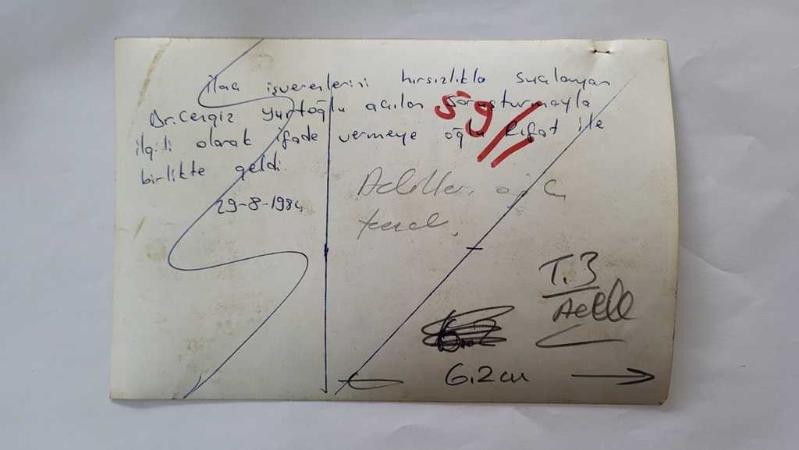 ilaç işverenlerini hırsızlıkla suçlanyan
Dr. Cengiz Yurtoğlu açılan soruşturmayla
ilgili olarak ifade vermeye oğlu Rıfat ile
birlikte geldi.
29-8-1984
T.3
6.2 cm